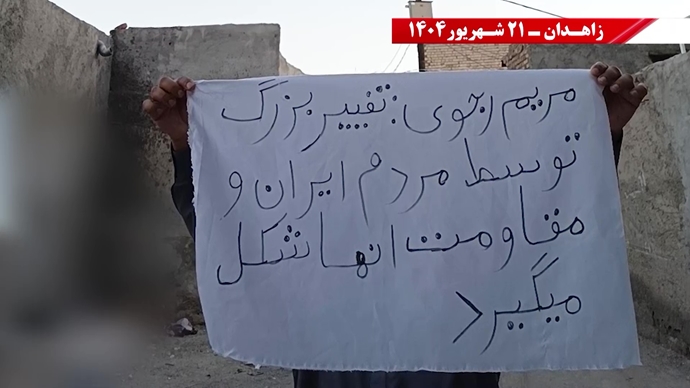 زاهدان – ۲۱ شهریور ۱۴۰۴
مریم رجوی: تغییر بزرگ
توسط مردم ایران و
مقاومت انها شکل
میگیرد